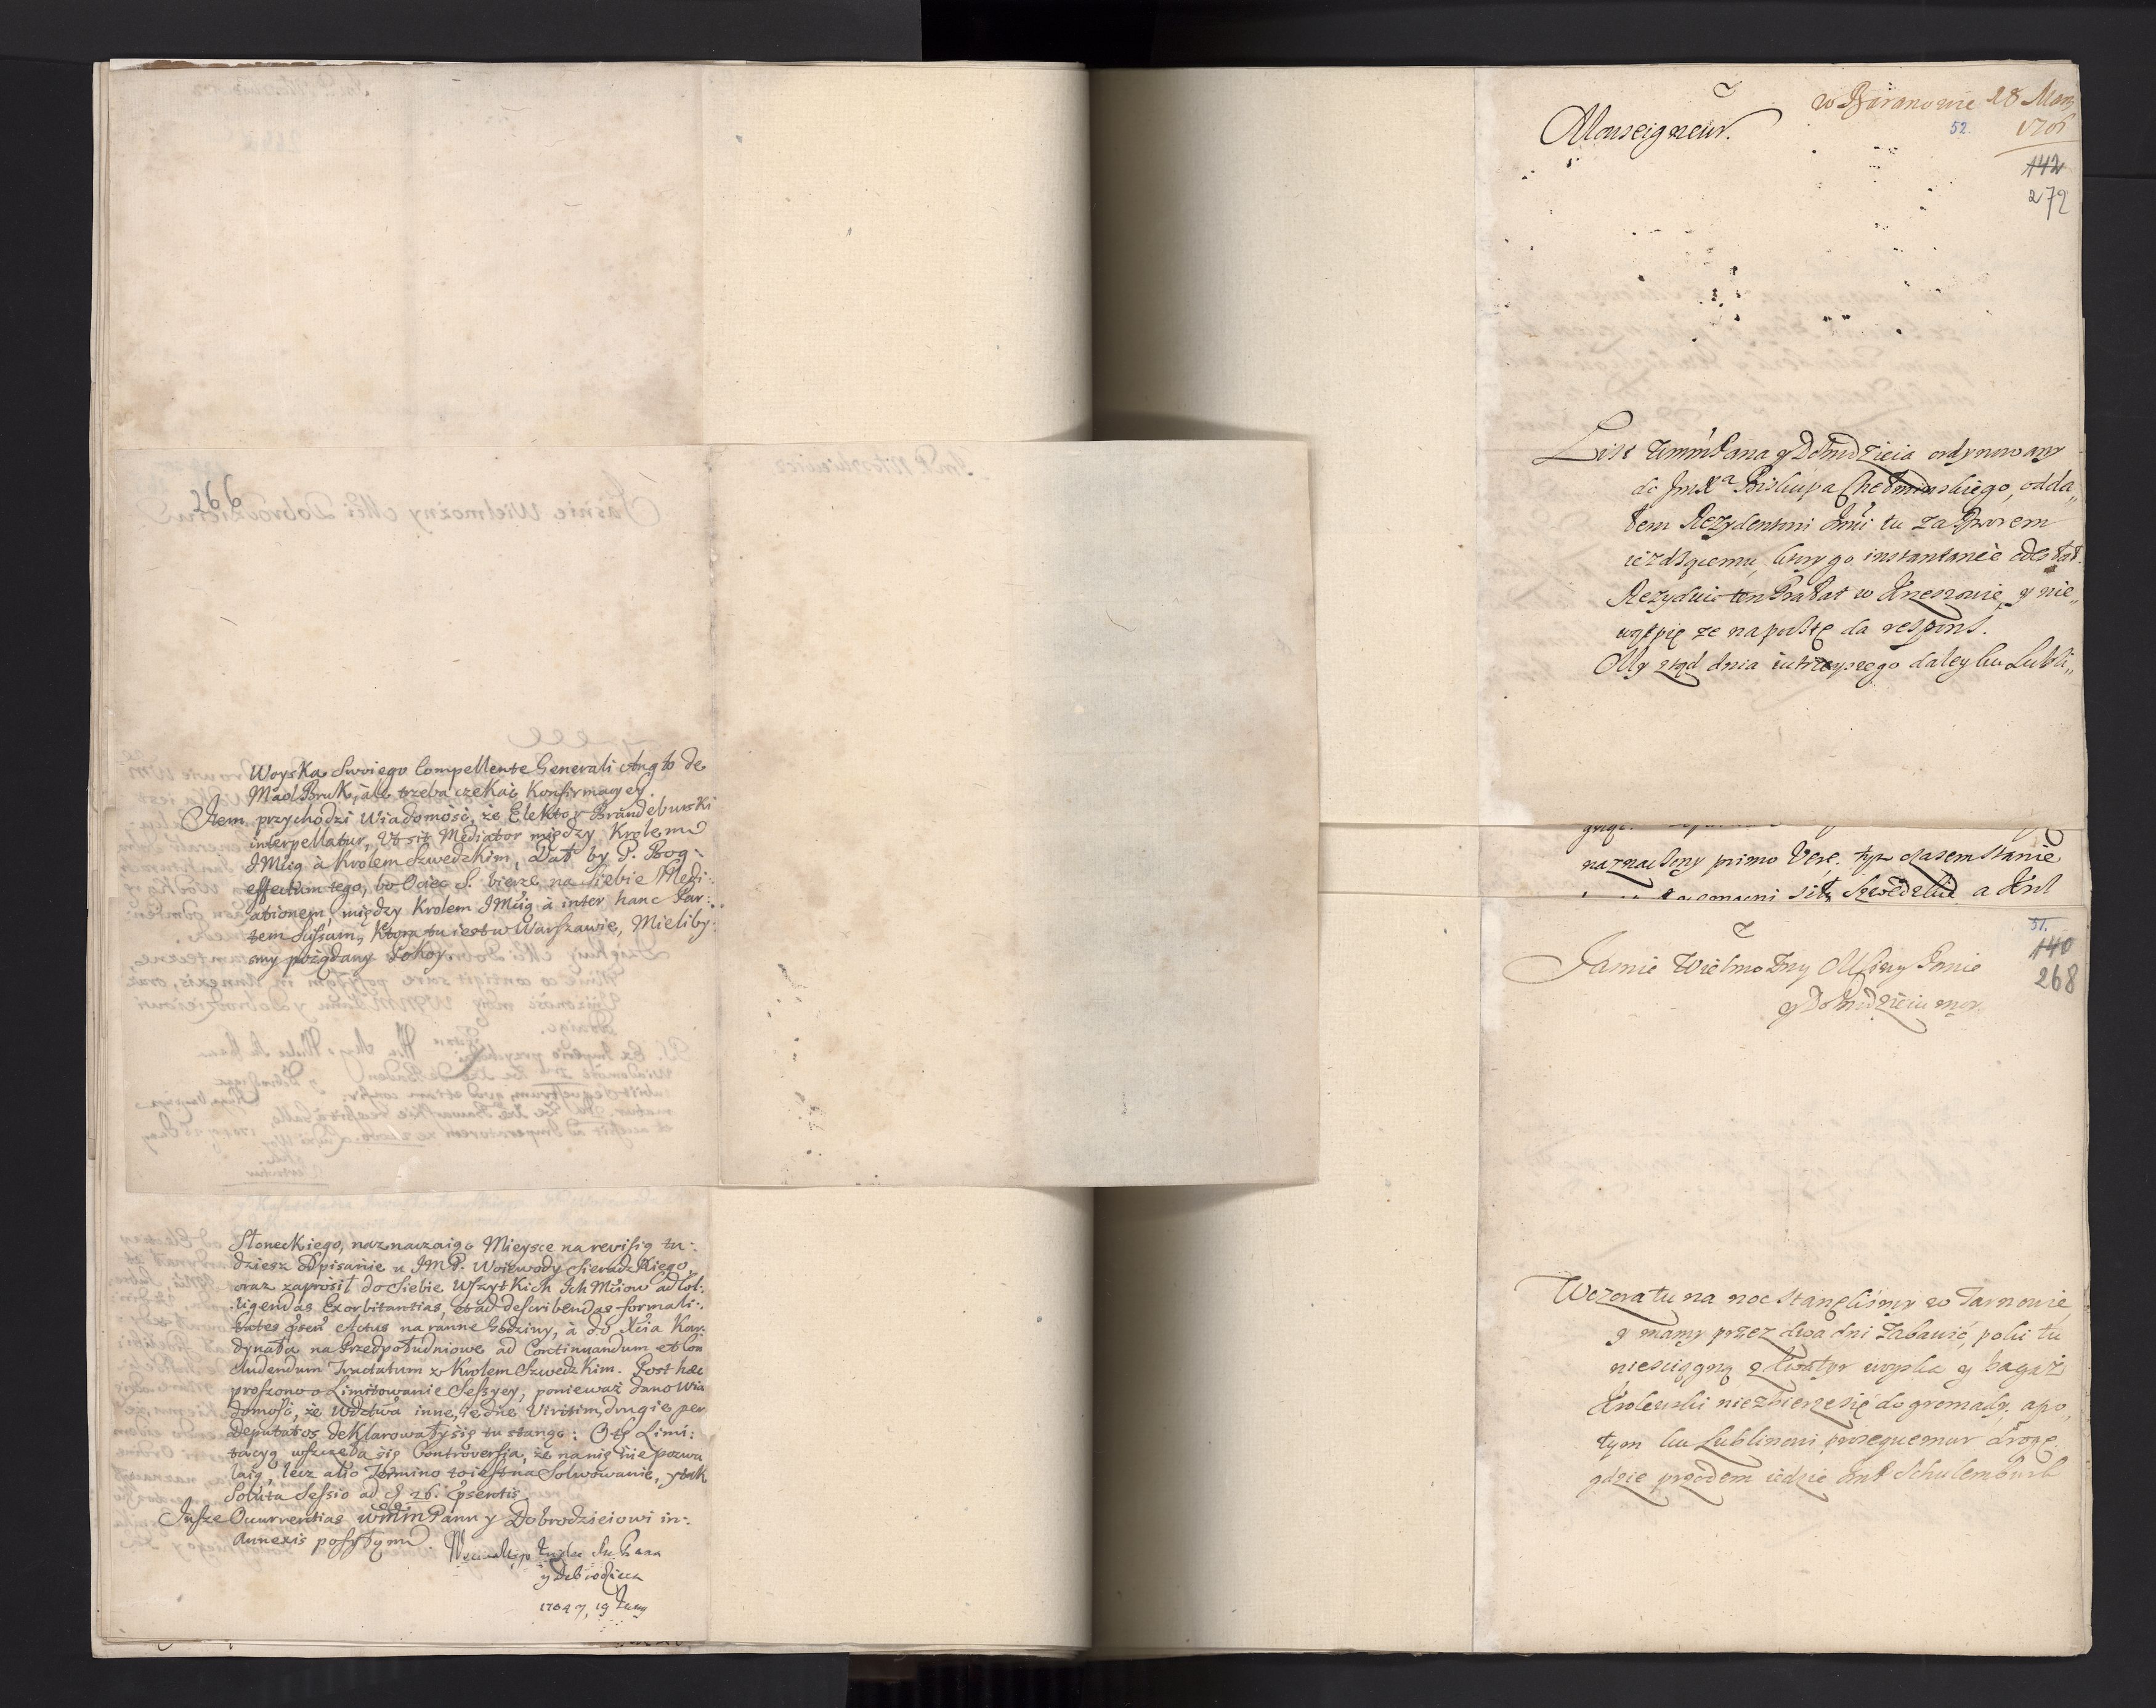 266
Woyska Swoiego Compellente Generali Anglo de
MaolBruk, ale trzeba czekać Konfirmacyey.
Item przychodzi Wiadomość, że Elektor Brandeburski
interpellatur, Ut sit Mediator między Krolem
JMcią à Krolem Szwedzkim, Dał by P. Bog
effectum tego, bo Ociec S. bierze na siebie Medi:
ationem, między Krolem JMcią à inter hanc Par:
tem Sussam, Ktora tu iest w Warszawie, Mieliby:
smy pożądany Pokoy.
Słoneckiego, naznaczaiąc Mieysce na revisią tu:
dziesz Odpisanie u JMP. Woiewody Sieradzkiego,
oraz zaprosił do Siebie Wszytkich Ich Mciow ad Col:
ligendas Exorbitantias, et ad describendas formali:
tates psen Actus na ranne Godziny, à do Xcia Kar:
dynała na Przedpołudniowe ad Continuandum et Con
cludendum Tractatum z Krolem Szwedzkim. Post hæc
proszono o Limitowanie Sessyey, ponieważ dano Wia
domość, że Wdztwa inne, iedne Viritim, drugie per
Deputatos deklarowały się tu stanąć: O tę Limi:
tacyą wszczęła się Controversia, że na nię nie pozwa
laią, lecz alio Termino to iest na Solwowanie, y tak
Soluta Sessio ad d. 26. psentis.
Jusze Ocurrentias WMM Panu y Dobrodzieiowi in:
Annexis posyłam.
y Dobrodzieia
w Baranowie 28 Marz
1706
52.
Monseigneur.
142
272
List WmmPana y Dobrodzieia ordynowany
do JmXa Biskupa Chełminskiego, odda„
łem Rezydentowi Jmci tu za Dworem
ieżdżącemu, ktory go instantanèe odesłał.
Rezyduie ten Prałat w Krzeszowie, y nie„
wątpię że na pusłę da respons.
My ztąd dnia iutrzeyszego daley ku Lubli„
naznaczony primo Vere. tym czasem stanie
a Krol
51.
140
268
Jasnie Wielmożny Mszy Panie
y Dobrodzieiu moy.
Wczora tu na noc stanęliśmy w Tarnowie,
y mamy przez dwa dni zabawić, poki tu
niesciągną z kwatyr woyska y bagaż
Krolewski niezbierze się do gromady, apo„
tym ku Lublinowi prosequemur drogę
gdzie przodem iedzie JmP Schulemburk